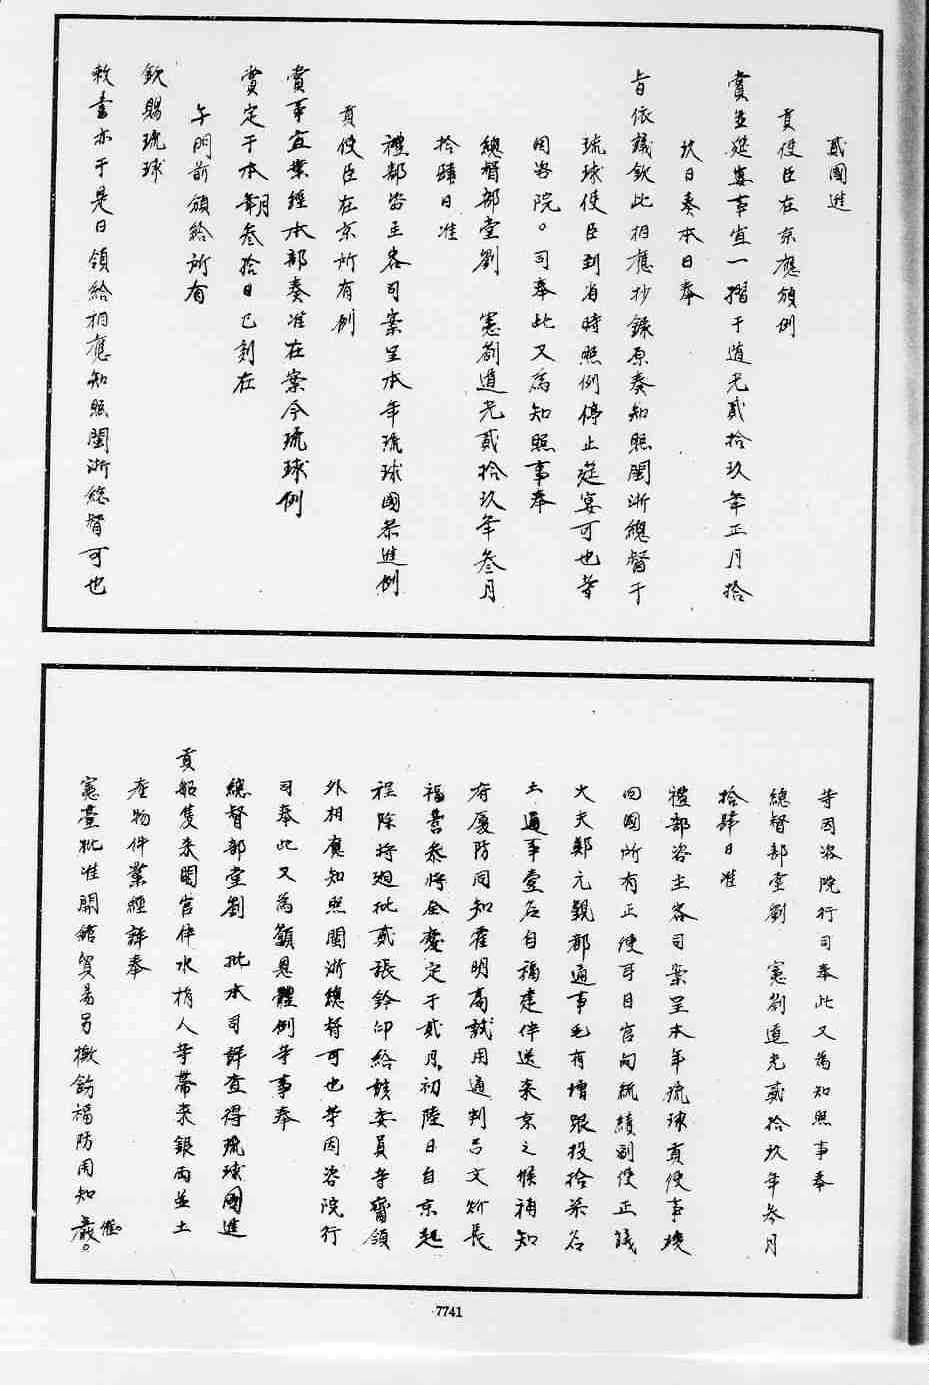 貳國進
貢使臣在京應頒例
賞並筵宴事宜一摺于道光貳拾玖年正月拾
玖日奏本日奉
旨依議欽此相應抄錄原奏知照閩浙總督于
琉球使臣到省時照例停止筵宴可也等
因咨院。司奉此又為知照事奉
總督部堂劉 憲劄道光貳拾玖年叁月
拾肆日准
禮部咨主客司案呈本年琉球國恭進例
貢使臣在京所有例
賞事宜業經本部奏准在案今琉球例
賞定于本年月叁拾日巳刻在
午門前頒給所有
欽賜琉球
敕書亦于是日領給相應知照閩浙總督可也
等因咨院行司奉此又為知照事奉
總督部堂劉 憲劄道光貳拾玖年叁月
拾肆日准
禮部咨主客司案呈本年琉球貢使事竣
回國所有正使耳目官向統績副使正議
大夫鄭元覲都通事毛有增跟役拾柒名
土通事壹名自福建伴送來京之候補知
府厦防同知霍明高試用通判呂文炘長
福營參將全慶定于貳月初陸日自京起
程除將廻批貳張鈐印給該委員等賫領
外相應知照閩浙總督可也等因咨院行
司奉此又為籲恩體例等事奉
總督部堂劉 批本司詳查得琉球國進
貢船隻來閩官伴水梢人等帶來銀兩並土
產物件業經詳奉
憲臺批准開館貿易另檄飭福防同知